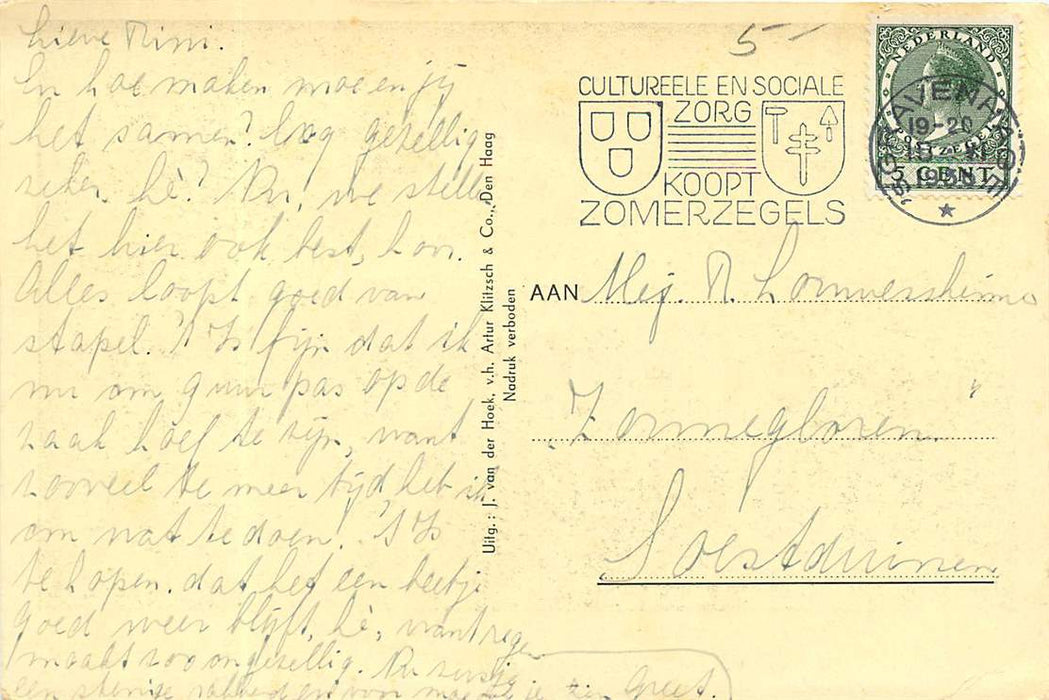 Lieve Rini.
En hoe maken moe en jij
het samen? Nog gezellig
zeker, hè? Nu, we stellen
het hier ook best, hoor.
Alles loopt goed van
stapel. 't Is fijn dat ik
nu om 9 uur pas op de
zaak hoef te zijn, want
zooveel te meer tijd heb ik
om wat te doen. 't Is
te hopen dat het een beetje
goed weer blijft, hè, want regen
maakt zoo ongezellig. Nu
een stevige en voor moe Greet.
Uitg.: J. van der Hoek, v.h. Artur Klitzsch & Co., Den Haag
Nadruk verboden
5
CULTUREELE EN SOCIALE
ZORG
KOOPT
ZOMERZEGELS
NEDERLAND
5 CENT
'S GRAVENHAGE
19-20
AAN Mej. R.
"Zonnegloren"
Soestduinen